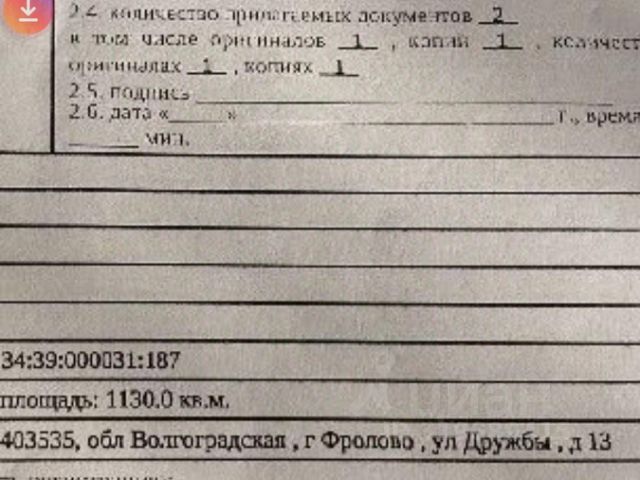 2.4. количество прилагаемых документов 2
в том числе оригиналов 1 , копий 1 , количест
оригиналах 1 , копиях 1
2.5. подпись
2.6. дата « » г., время
мин.
34:39:000031:187
площадь: 1130.0 кв.м.
403535, обл Волгоградская , г Фролово , ул Дружбы , д 13